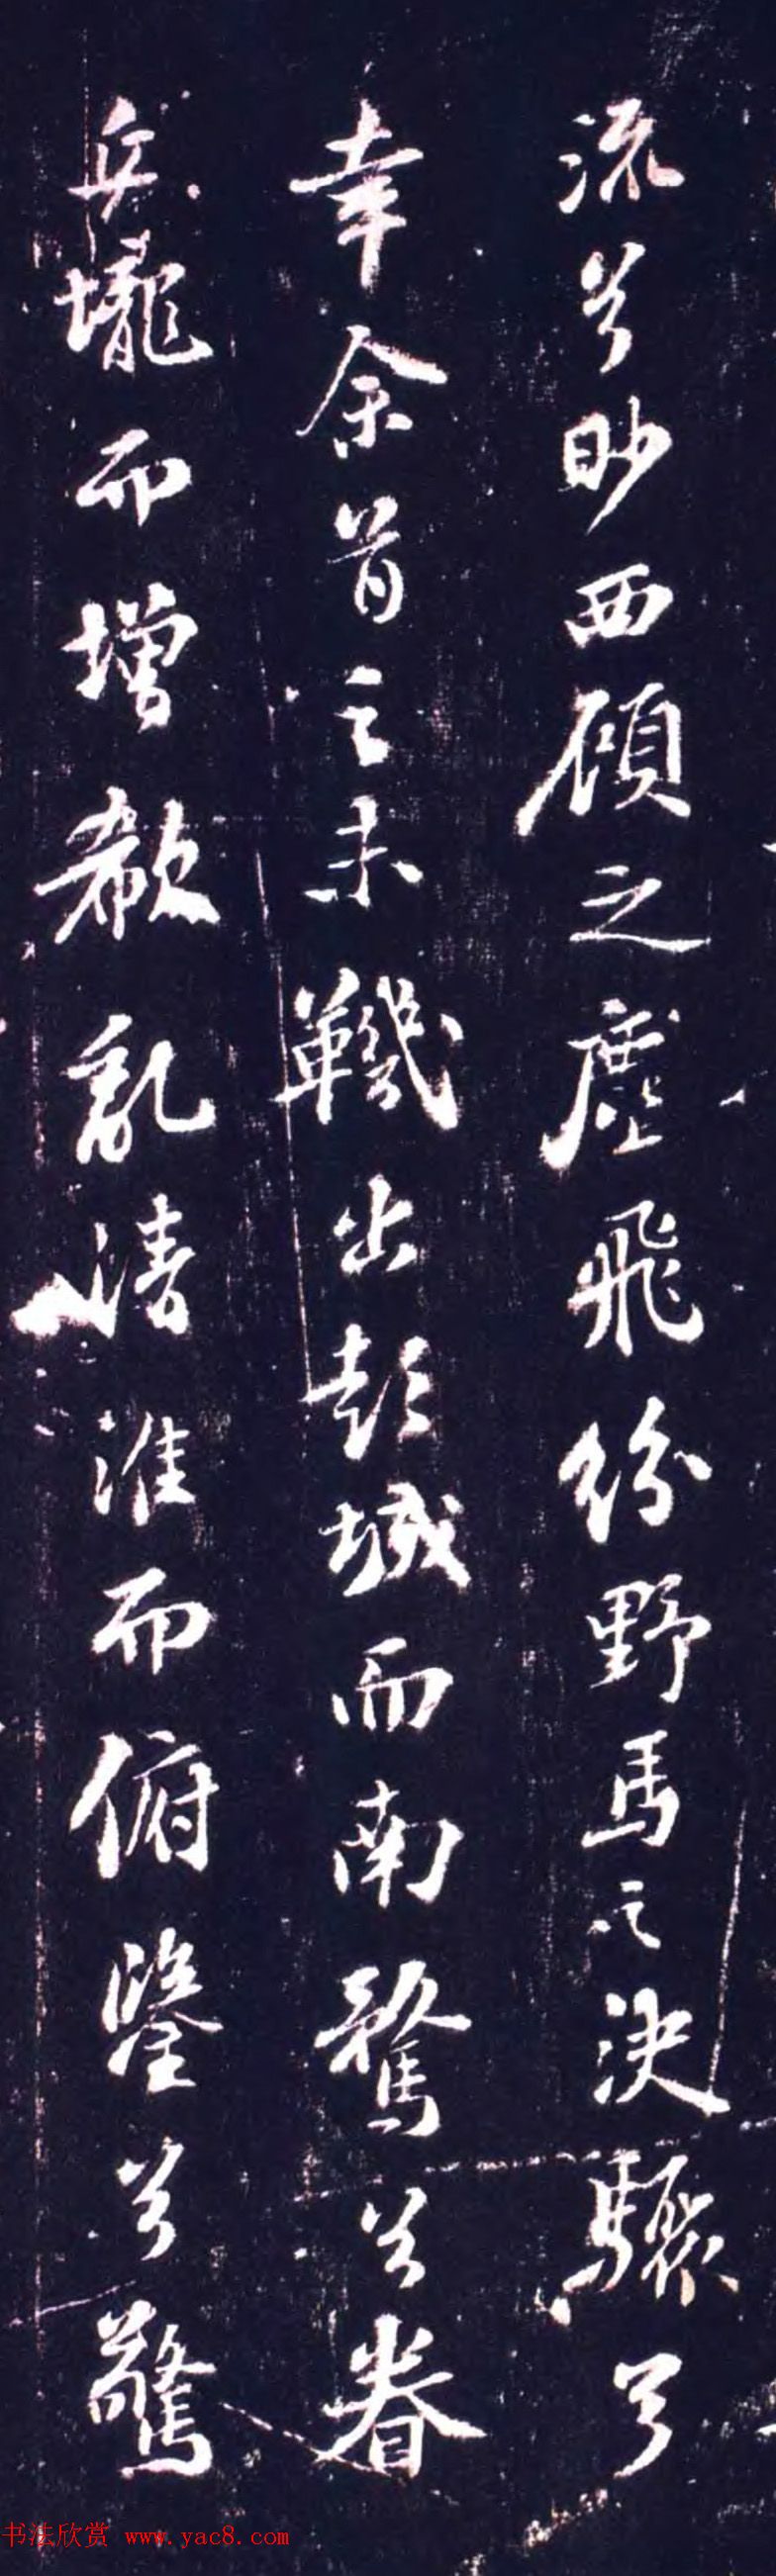 流兮眇西顧之塵飛紛野馬之決驟兮
幸余首之未鞿出彭城而南騖兮眷
丘壠而增欷亂清淮而俯鑒兮驚
书法欣赏 www.yac8.com